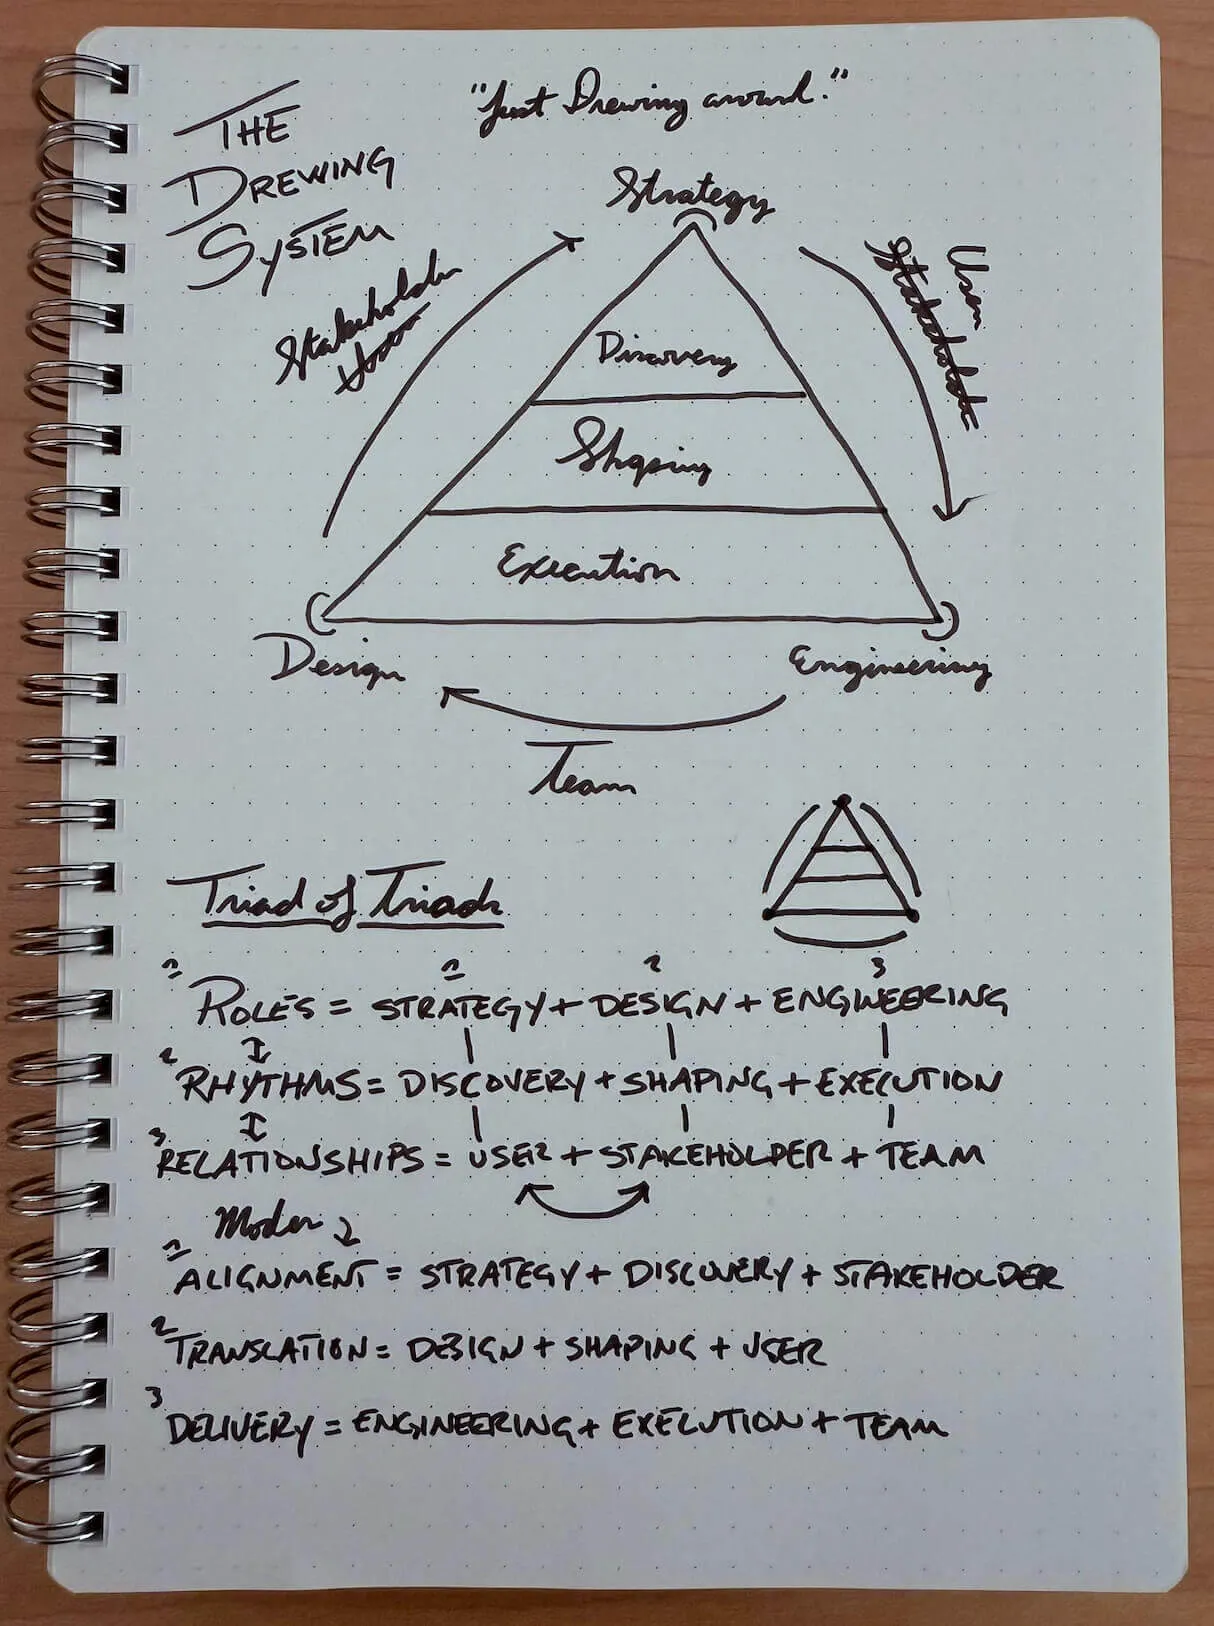 THE
DREWING
SYSTEM
"Just Drewing around."
Strategy
Stakeholder
User
User
Stakeholder
Discovery
Shaping
Execution
Design
Engineering
Team
Triad of Triads
1 1 2 3
ROLES = STRATEGY + DESIGN + ENGINEERING
2 RHYTHMS = DISCOVERY + SHAPING + EXECUTION
3 RELATIONSHIPS = USER + STAKEHOLDER + TEAM
Modes
1 ALIGNMENT = STRATEGY + DISCOVERY + STAKEHOLDER
2 TRANSLATION = DESIGN + SHAPING + USER
3 DELIVERY = ENGINEERING + EXECUTION + TEAM